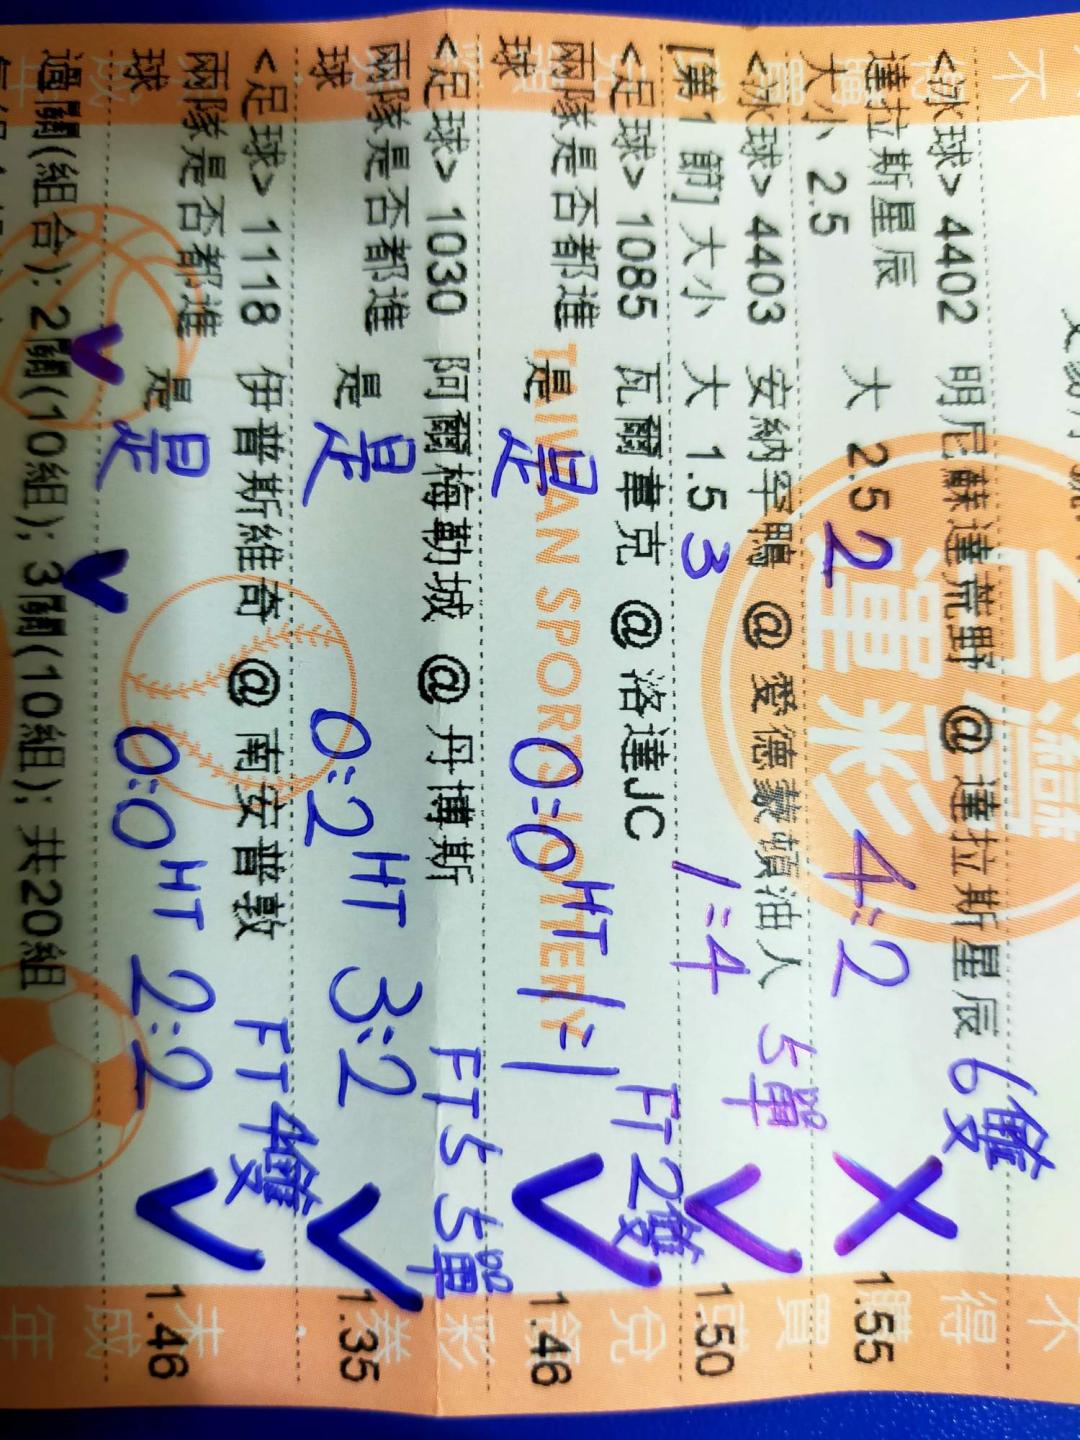 <冰球> 4402 明尼蘇達荒野 @ 達拉斯星辰 6雙
達拉斯星辰 大 2.5 2 4:2 1.55
大小 2.5
<冰球> 4403 安納罕鴨 @ 愛德蒙頓油人 5單
[第1節]大小 大 1.5 3 1:4 1.50
<足球> 1085 瓦爾韋克 @ 洛達JC FT 2雙
兩隊是否都進 是 是 0:0 HT 1:1 1.46
球
<足球> 1030 阿爾梅勒城 @ 丹博斯 FT 5 5單
兩隊是否都進 是 是 0:2 HT 3:2 1.35
球
<足球> 1118 伊普斯維奇 @ 南安普敦 FT 4雙
兩隊是否都進 是 是 0:0 HT 2:2 1.46
球
過關(組合): 2關(10組); 3關(10組); 共20組
台灣
運彩
TAIWAN SPORTS LOTTERY